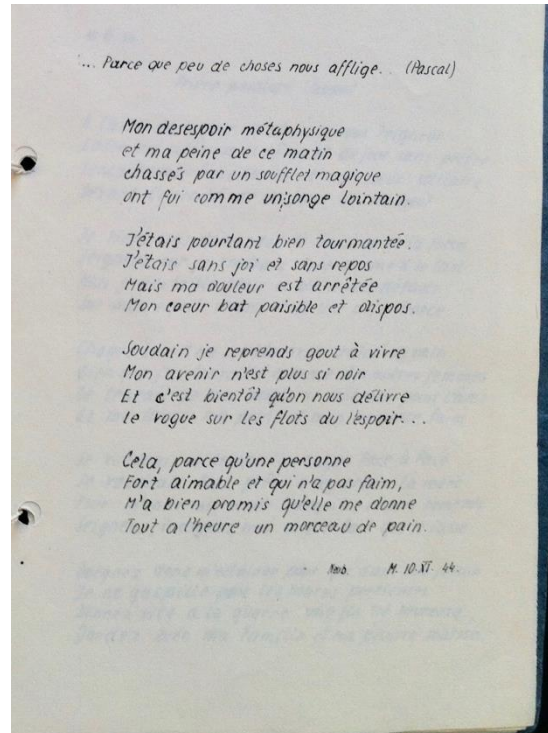 ... Parce que peu de choses nous afflige.. (Pascal)
Mon desespoir métaphysique
et ma peine de ce matin
chassés par un soufflet magique
ont fui comme un songe lointain.
J'étais pourtant bien tourmantée.
J'étais sans joi et sans repos
Mais ma douleur est arrêtée
Mon coeur bat paisible et dispos.
Soudain je reprends gout à vivre
Mon avenir n'est plus si noir
Et c'est bientôt qu'on nous délivre
le vogue sur les flots du l'espoir...
Cela, parce qu'une personne
Fort aimable et qui n'a pas faim,
M'a bien promis qu'elle me donne
Tout a l'heure un morceau de pain.
M. 10. XI. 44.